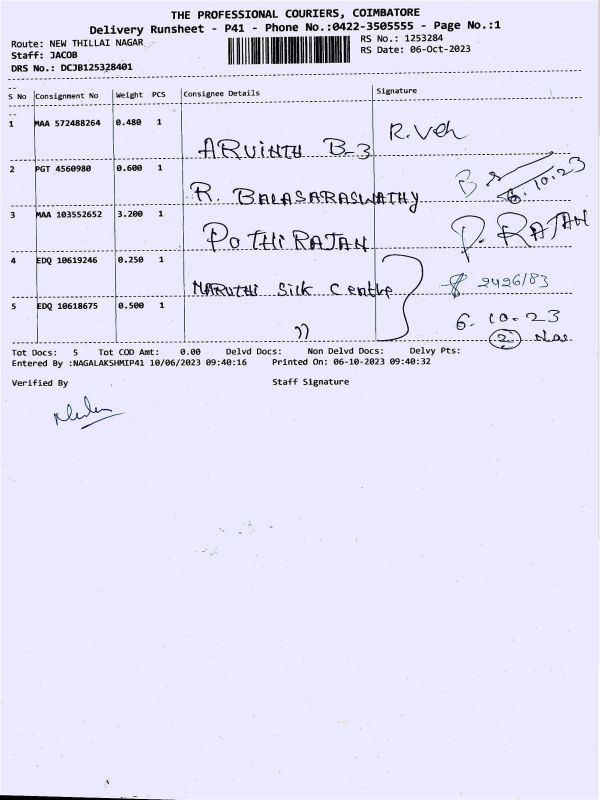 THE PROFESSIONAL COURIERS, COIMBATORE
Delivery Runsheet - P41 - Phone No.:0422-3505555 - Page No.:1
Route: NEW THILLAI NAGAR
RS No.: 1253284
Staff: JACOB
RS Date: 06-Oct-2023
DRS No.: DCJB125328401
S No Consignment No Weight PCS Consignee Details Signature
1 MAA 572488264 0.480 1
ARVINTH B-3
2 PGT 4560980 0.600 1
R. BALASARASWATHY 6.10.23
3 MAA 103552652 3.200 1
POTHIRAJAN P. RAJAN
4 EDQ 10619246 0.250 1
MARUTHI Silk Centre
5 EDQ 10618675 0.500 1
" 6.10.23
2 Nos
Tot Docs: 5 Tot COD Amt: 0.00 Delvd Docs: Non Delvd Docs: Delvy Pts:
Entered By :NAGALAKSHMIP41 10/06/2023 09:40:16 Printed On: 06-10-2023 09:40:32
Verified By Staff Signature